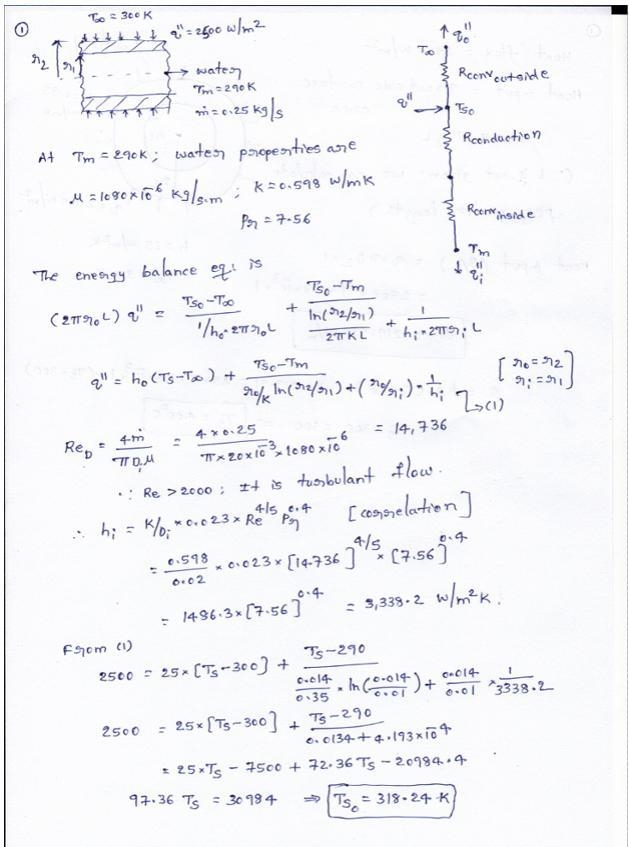 ①
T∞ = 300K
q'' = 2500 W/m²
r2
r1
→ water
Tm = 290K
ṁ = 0.25 Kg/s
q''o
T∞
Rconv outside
q''
Tso
Rconduction
Rconv inside
Tm
q''i
At Tm = 290K; water properties are
μ = 1080×10⁻⁶ Kg/s.m ; K = 0.598 W/mK
Pr = 7.56
The energy balance eq: is
(2πroL) q'' = (Tso - T∞)/(1/ho·2πroL) + (Tso - Tm)/(ln(r2/r1)/2πKL + 1/(hi·2πriL))
q'' = ho (Ts - T∞) + (Tso - Tm)/(ro/K ln(r2/r1) + (ro/ri) * 1/hi) → (1) [ro = r2 ri = r1]
ReD = 4ṁ/(πDiμ) = (4 × 0.25)/(π × 20×10⁻³ × 1080×10⁻⁶) = 14,736
∵ Re > 2000; It is turbulant flow.
∴ hi = K/Di × 0.023 × Re^4/5 Pr^0.4 [correlation]
= 0.598/0.02 × 0.023 × [14736]^4/5 × [7.56]^0.4
= 1486.3 × [7.56]^0.4 = 3,338.2 W/m²K.
From (1)
2500 = 25 × [Ts - 300] + (Ts - 290)/(0.014/0.35 × ln(0.014/0.01) + 0.014/0.01 × 1/3338.2)
2500 = 25 × [Ts - 300] + (Ts - 290)/(0.0134 + 4.193×10⁻⁴)
= 25 × Ts - 7500 + 72.36 Ts - 20984.4
97.36 Ts = 30984 ⇒ Tso = 318.24 K